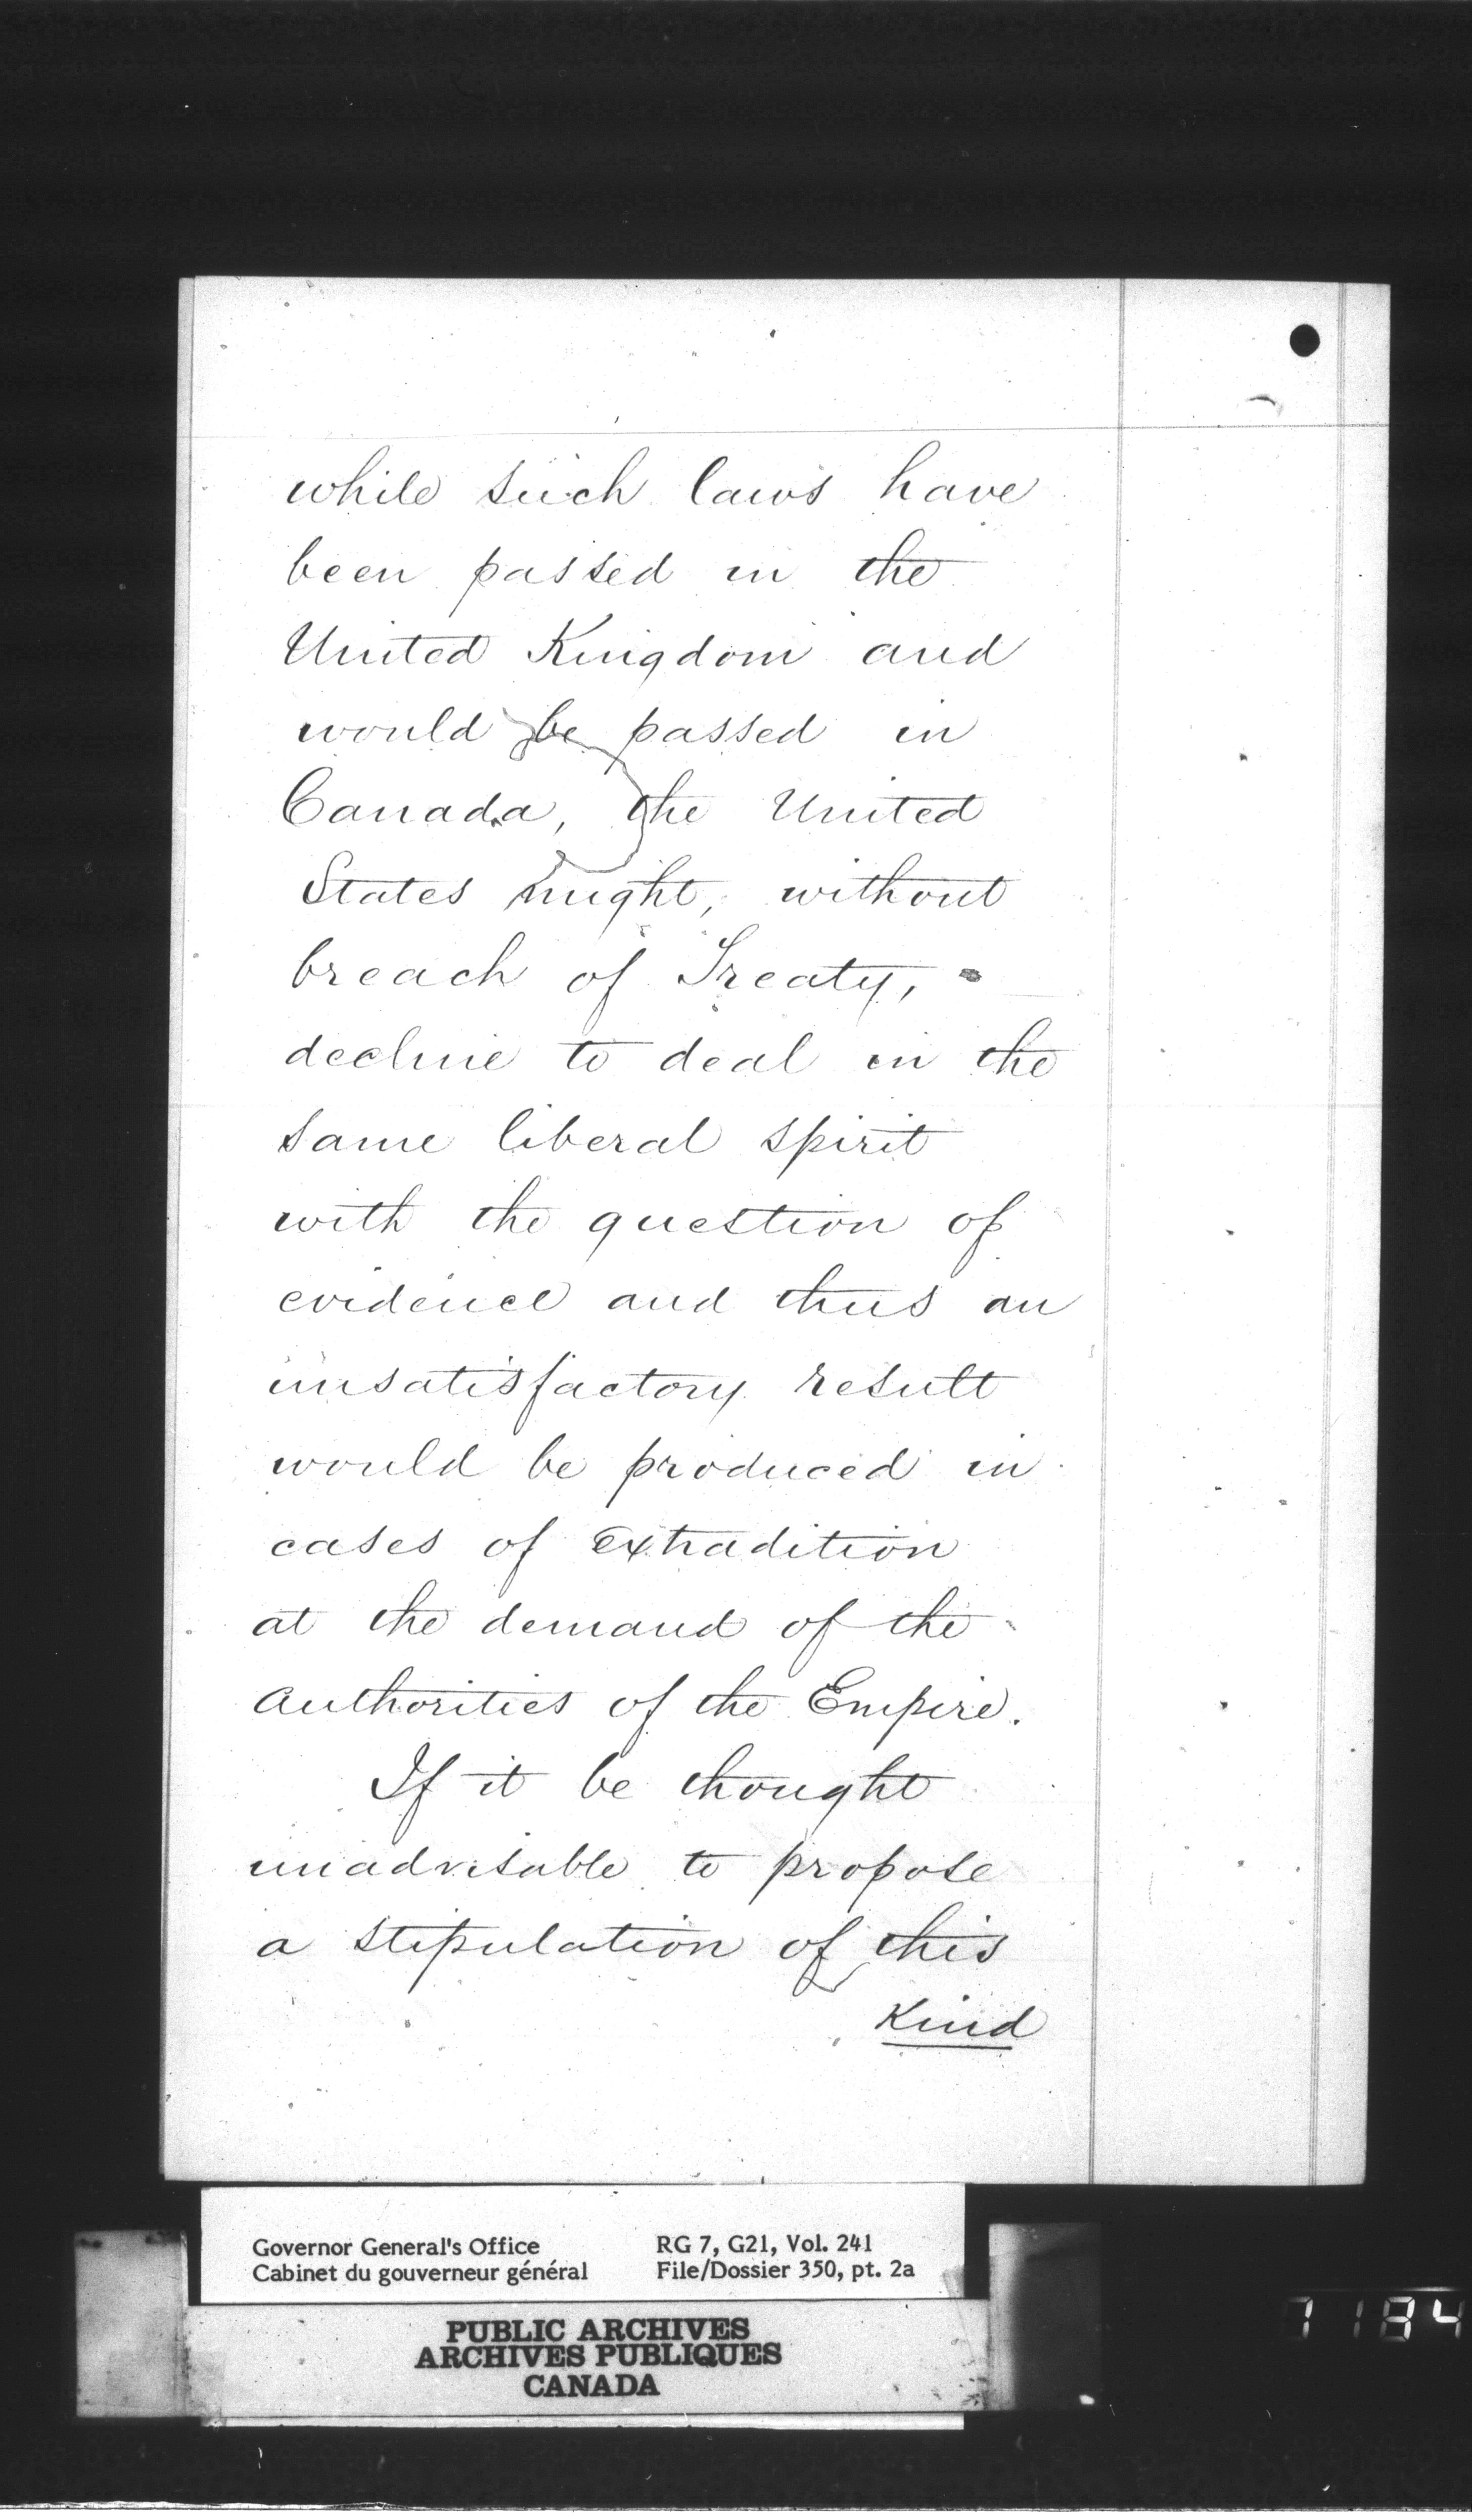 while such laws have
been passed in the
United Kingdom and
would be passed in
Canada, the United
States might, without
breach of Treaty,
decline to deal in the
same liberal spirit
with the question of
evidence and thus an
unsatisfactory result
would be produced in
cases of extradition
at the demand of the
authorities of the Empire.
If it be thought
unadvisable to propose
a stipulation of this
Kind
Governor General's Office RG 7, G21, Vol. 241
Cabinet du gouverneur général File/Dossier 350, pt. 2a
PUBLIC ARCHIVES
ARCHIVES PUBLIQUES
CANADA
1184